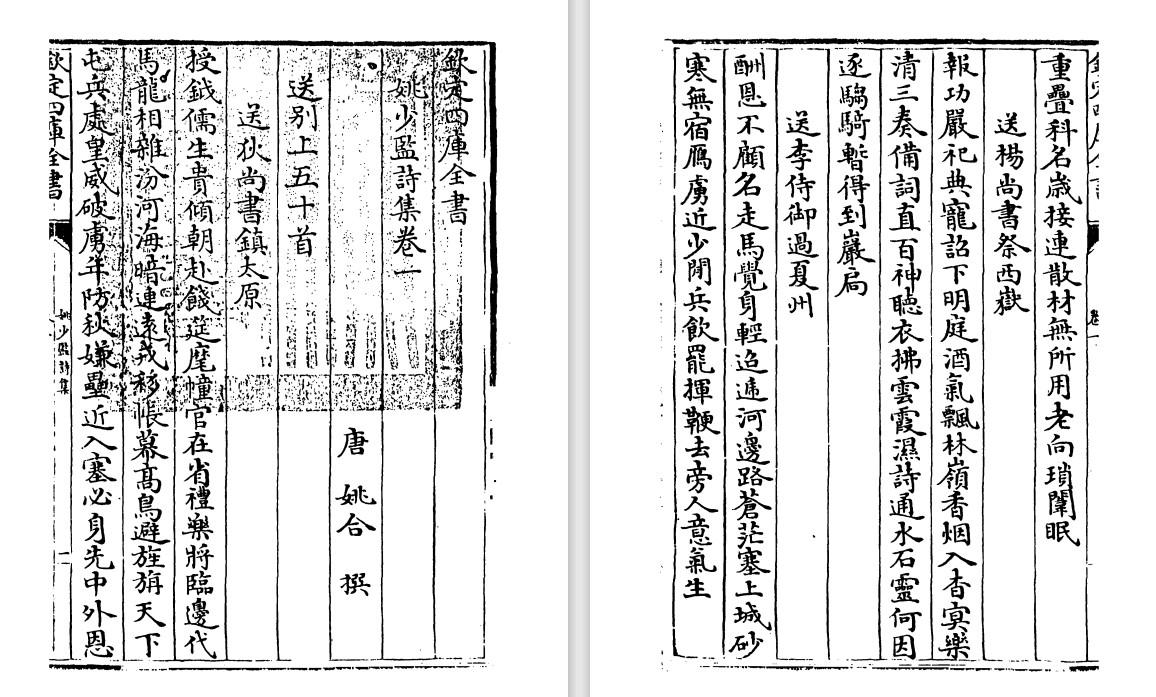 欽定四庫全書
姚少監詩集卷一
唐 姚合 撰
送别上五十首
送狄尚書鎮太原
授鉞儒生貴傾朝赴餞筵麾幢官在省禮樂將臨邊代
馬龍相雜汾河海暗連遠戎移帳幕髙鳥避旌旃天下
屯兵處皇威破虜年防秋嫌壘近入塞必身先中外恩
欽定四庫全書 姚少監詩集 一
重疊科名歳接連散材無所用老向瑣闈眠
送楊尚書祭西嶽
報功嚴祀典寵詔下明庭酒氣飄林嶺香烟入杳冥樂
清三奏備詞直百神聽衣拂雲霞濕詩通水石靈何因
逐騶騎暫得到巖扃
送李侍御過夏州
酬恩不顧名走馬覺身輕迢遞河邊路蒼茫塞上城砂
寒無宿鴈虜近少閒兵飲罷揮鞭去旁人意氣生